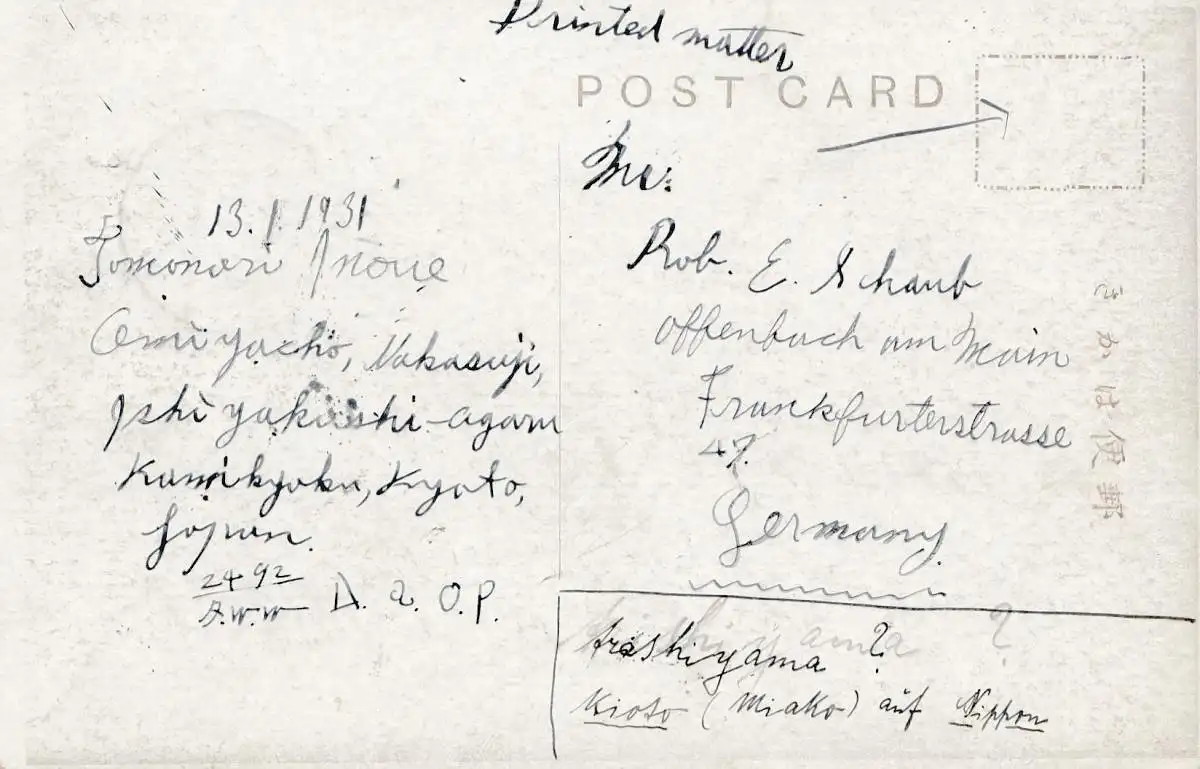 Printed matter
POST CARD
13.1.1931
Tomonari Inoue
Omiyacho, Nakasuji,
Ishiyakushi-agaru
Kamikyoku, Kyoto,
Japan.
2492
D. 2. O.P.
Mr:
Rob. E. Schaub
Offenbach am Main
Frankfurterstrasse
47.
Germany
郵便はがき
Arashiyama ?
Kioto (Miako) auf Nippon